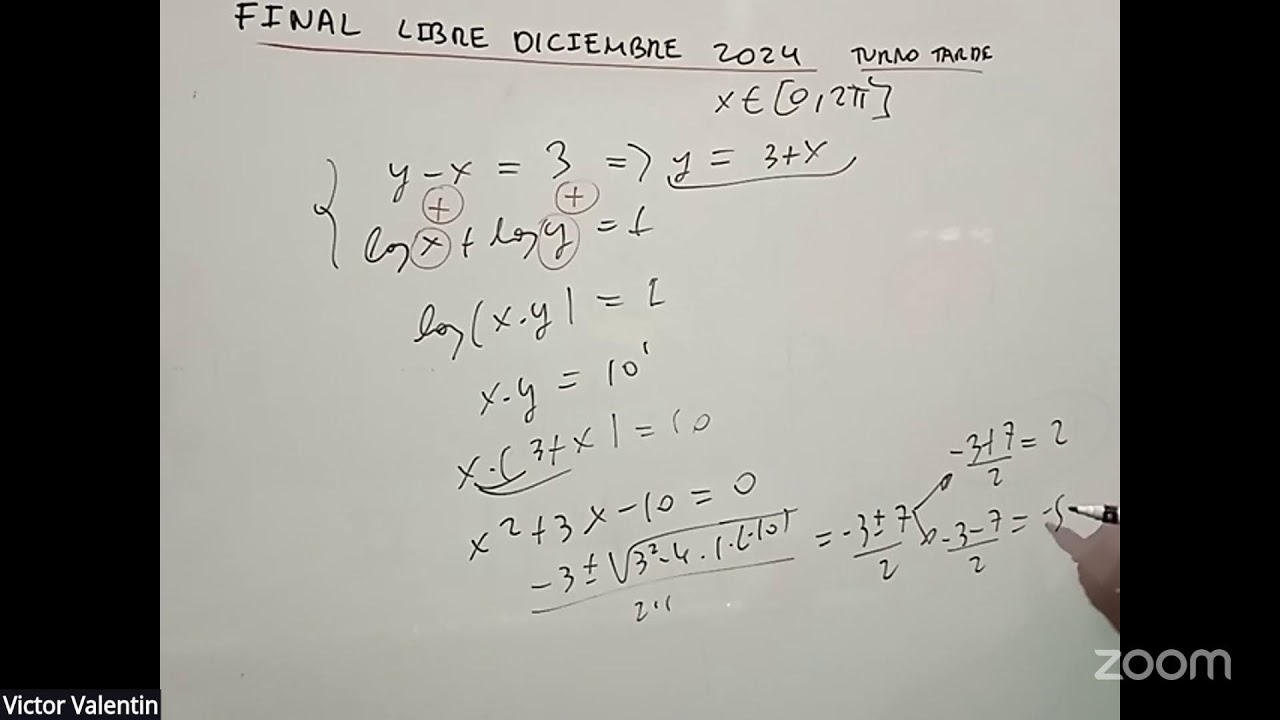 FINAL LIBRE DICIEMBRE 2024 TURNO TARDE
x ∈ [0, 2π]
y - x = 3 => y = 3+x
+ +
log x + log y = 1
log(x.y) = 1
x.y = 10¹
x.(3+x) = 10
x² + 3x - 10 = 0
-3 ± √3²-4.1.(-10) / 2.1 = -3±7 / 2
-3+7 / 2 = 2
-3-7 / 2 = -5
zoom
Victor Valentin